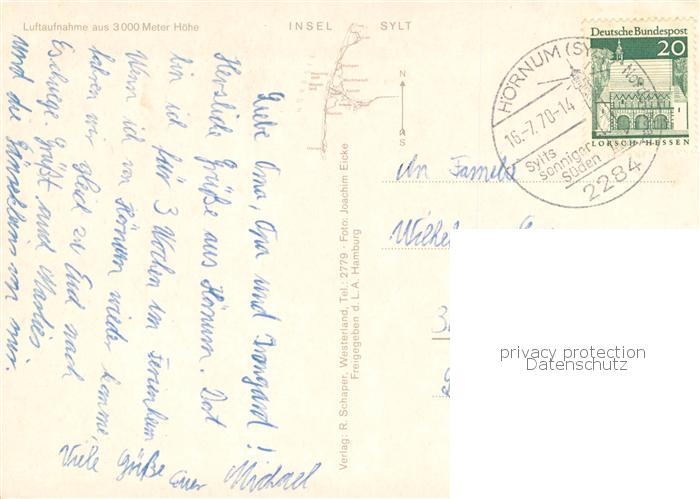 Luftaufnahme aus 3000 Meter Höhe
INSEL SYLT
N
S
Deutsche Bundespost
20
LORSCH/HESSEN
HÖRNUM (SYLT)
16.-7.70-14
Sylts
sonniger
Süden
2284
Liebe Oma, Opa und Irmgard!
Herzliche Grüße aus Hörnum. Dort
bin ich für 3 Wochen im Ferienheim
Wenn ich von Hörnum wieder komme,
fahren wir gleich zu Euch nach
Eschwege. Grüßt auch Marlies
und die von mir.
Viele Grüße Euer Michael
Verlag: R. Schaper, Westerland, Tel.: 2779 · Foto: Joachim Eicke
Freigegeben d. L. A. Hamburg
An Familie
privacy protection
Datenschutz